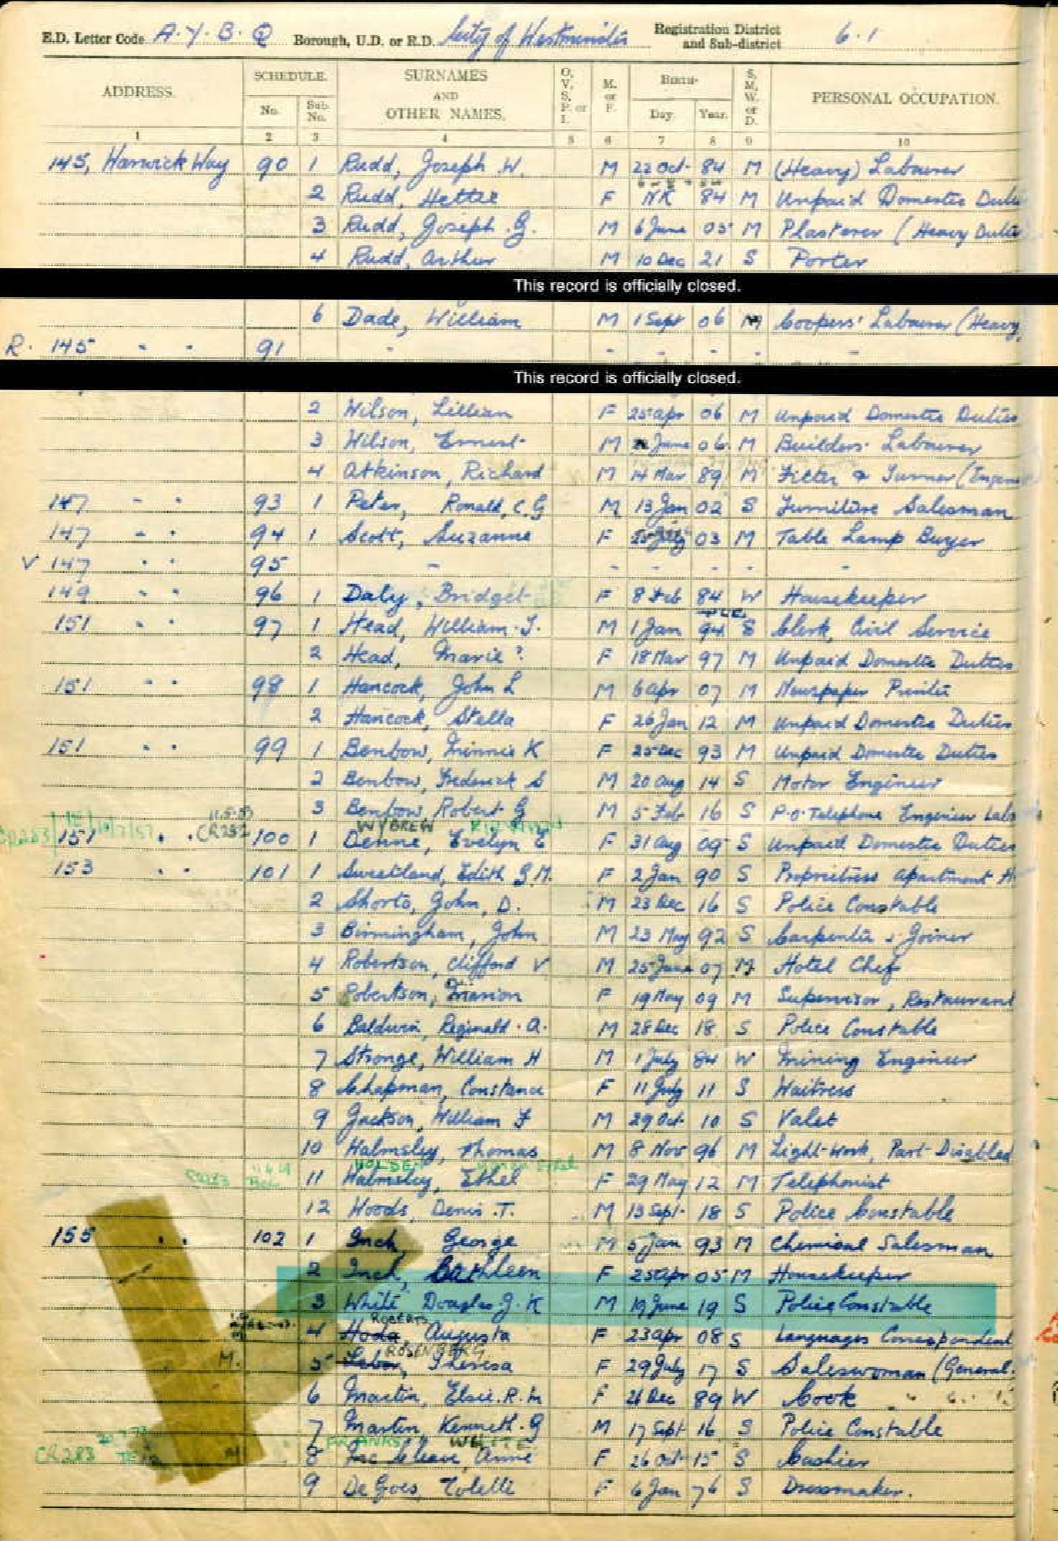 E.D. Letter Code A.Y.B.Q Borough, U.D. or R.D. City of Westminster Registration District and Sub-district 6.1
ADDRESS. SCHEDULE. No. Sub. No. SURNAMES AND OTHER NAMES. O, V, S, P, or I. M. or F. Birth- Day. Year. S, M, W, or D. PERSONAL OCCUPATION.
1 2 3 4 5 6 7 8 9 10
145, Warwick Way 90 1 Rudd, Joseph W. M 22 Oct 84 M (Heavy) Labourer
2 Rudd, Hettie F NK 84 M Unpaid Domestic Duties
3 Rudd, Joseph G. M 6 June 03 M Plasterer (Heavy Duties
4 Rudd, Arthur M 10 Dec 21 S Porter
This record is officially closed.
6 Dade, William M 1 Sept 06 M Coopers' Labourer (Heavy
R. 145 " " 91 - - - - - -
This record is officially closed.
2 Wilson, Lillian F 25 Apr 06 M Unpaid Domestic Duties
3 Wilson, Ernest M June 06 M Builders Labourer
4 Atkinson, Richard M 14 Mar 89 M Fitter & Turner (Engine
147 " " 93 1 Peter, Ronald, C.G M 13 Jan 02 S Furniture Salesman
147 " " 94 1 Scott, Suzanne F July 03 M Table Lamp Buyer
V 147 " " 95 - - - - - -
149 " " 96 1 Daly, Bridget F 8 Feb 84 W Housekeeper
151 " " 97 1 Head, William J. M 1 Jan 94 S Clerk, Civil Service
2 Head, Marie ? F 18 Mar 97 M Unpaid Domestic Duties
151 " " 98 1 Hancock, John L M 6 Apr 07 M Newspaper Printer
2 Hancock, Stella F 26 Jan 12 M Unpaid Domestic Duties
151 " " 99 1 Benbow, Minnie K F 25 Dec 93 M Unpaid Domestic Duties
2 Benbow, Frederick S M 20 Aug 14 S Motor Engineer
3 Benbow, Robert G M 5 Feb 16 S P.O. Telephone Engineer Lab
WYBREW
CR283 151 " " CR283 100 1 Denne, Evelyn E F 31 Aug 09 S Unpaid Domestic Duties
153 " " 101 1 Sweetland, Edith G.M. F 2 Jan 90 S Proprietress Apartment H
2 Shorto, John, D. M 23 Dec 16 S Police Constable
3 Birmingham, John M 23 May 92 S Carpenter & Joiner
4 Robertson, Clifford V M 25 June 07 M Hotel Chef
5 Robertson, Marion F 19 May 09 M Supervisor, Restaurant
6 Baldwin, Reginald A. M 28 Dec 18 S Police Constable
7 Stronge, William H M 1 July 84 W Mining Engineer
8 Chapman, Constance F 11 July 11 S Waitress
9 Jackson, William F M 29 Oct 10 S Valet
10 Walmsley, Thomas M 8 Nov 96 M Light-Work, Part-Disabled
HOLDEN
CR283 11 Walmsley, Ethel F 29 May 12 M Telephonist
12 Woods, Denis T. M 13 Sept 18 S Police Constable
155 " " 102 1 Inch, George M 5 Jan 93 M Chemical Salesman
2 Inch, Cathleen F 25 Apr 05 M Housekeeper
3 White Douglas J. K M 19 June 19 S Police Constable
ROBERTS
4 Hoda, Augusta F 23 Apr 08 S Languages Correspondent
ROSENBERG
M. 5 Theresa F 29 July 17 S Saleswoman (General.
6 Martin, Elsie. R. M F 26 Dec 89 W Cook
7 Martin Kenneth. G M 17 Sept 16 S Police Constable
FRANKS WHITE
CR283 M 8 Anne F 26 Oct 15 S Cashier
9 De Goes, F 6 Jan 76 S Dressmaker.